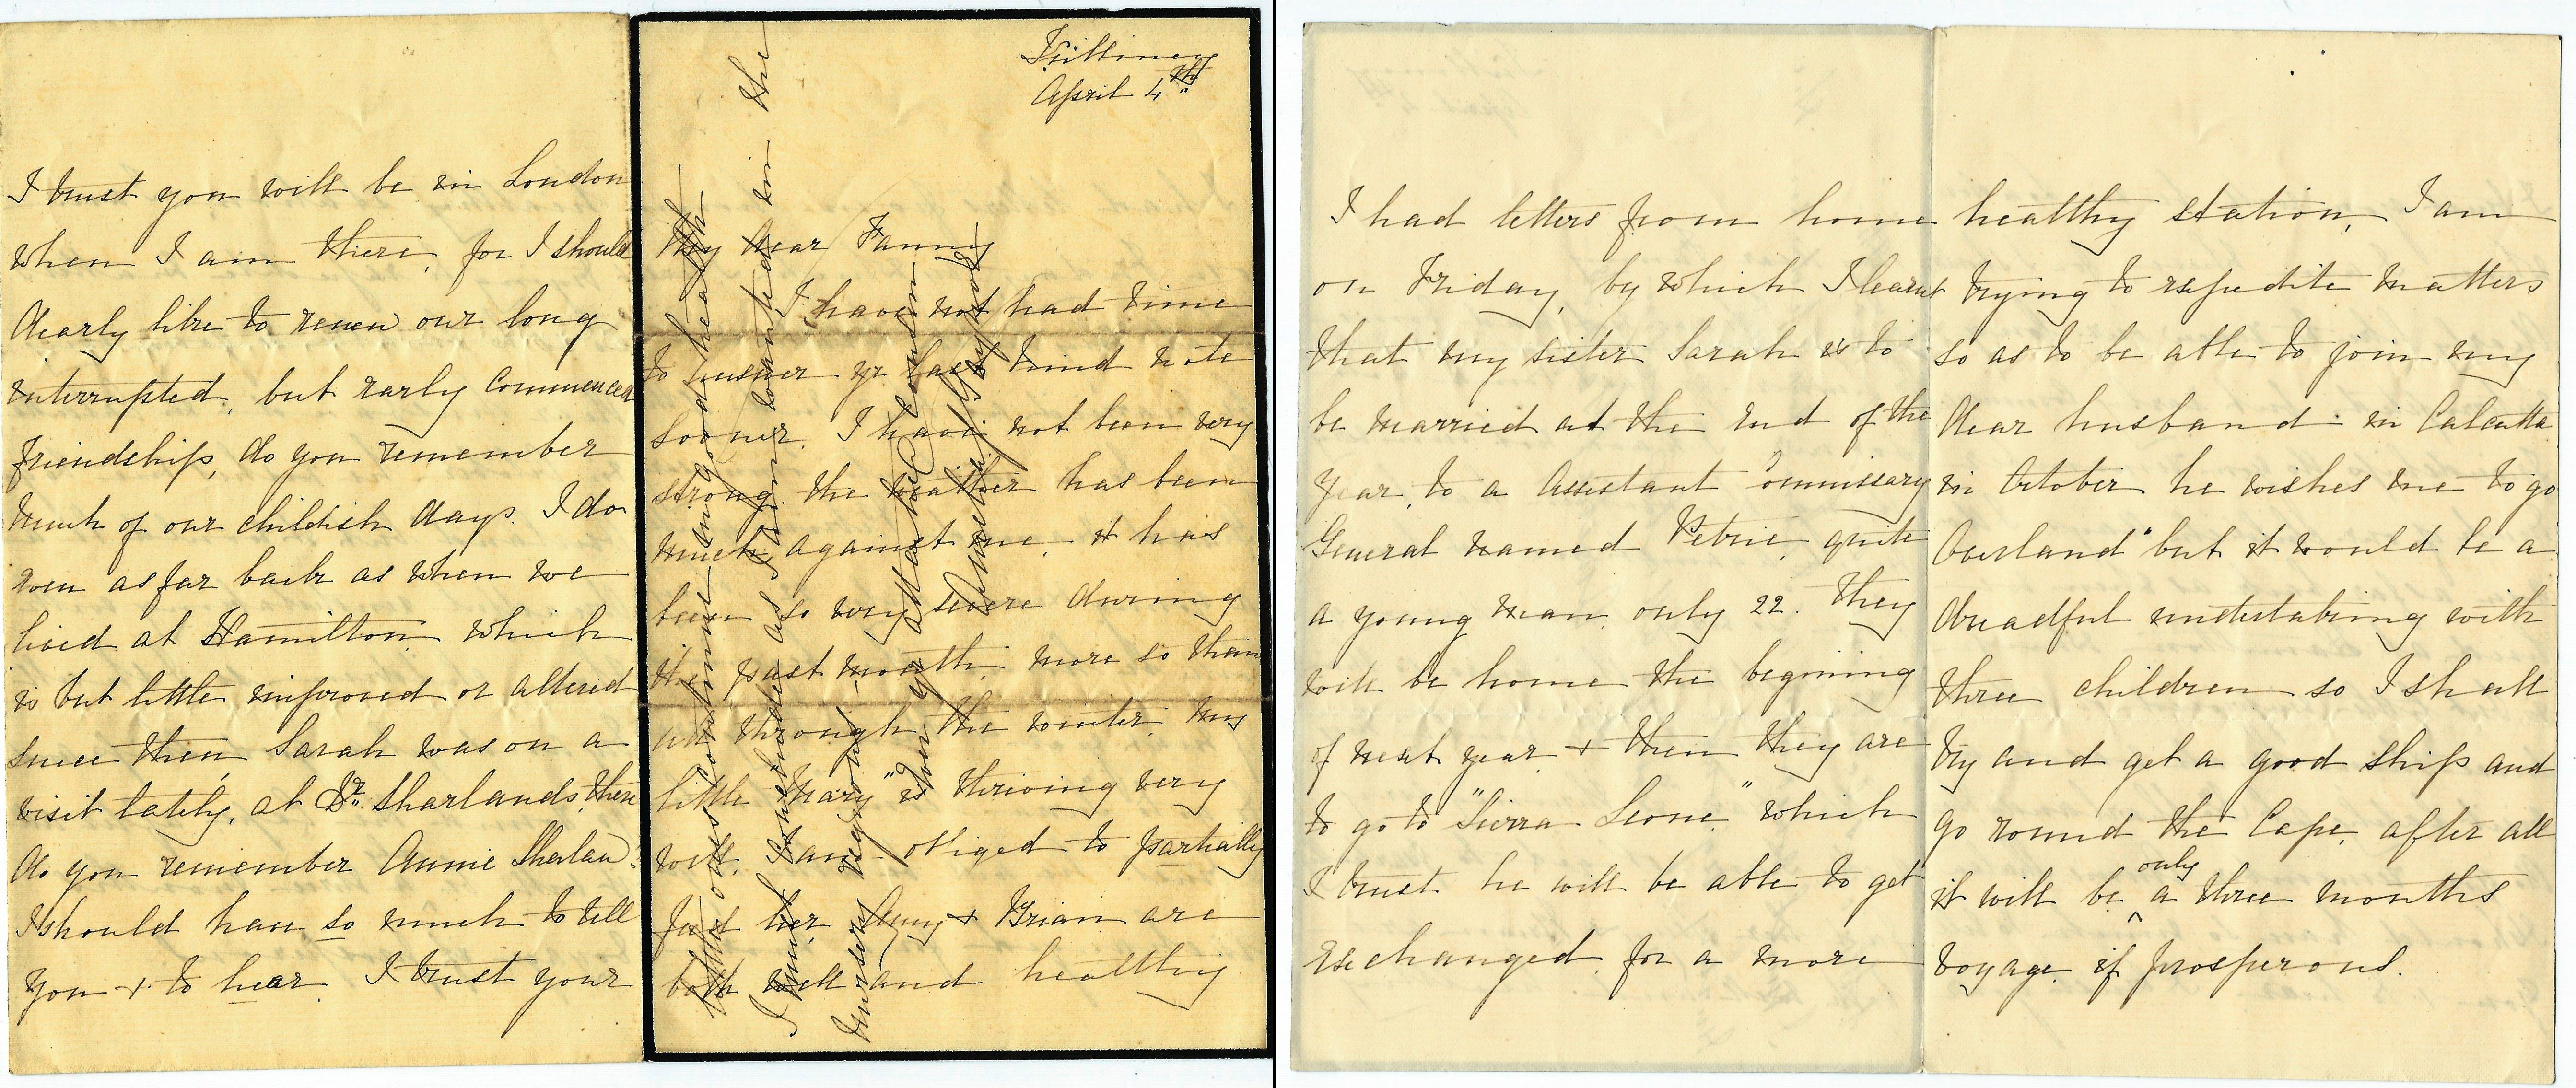 Killiney
April 4th
My dear Fanny
I have not had time
to answer yr last kind note
sooner. I have not been very
strong. the weather has been
much against me, it has
been so very severe during
the past month, more so than
all through the winter. my
little "Mary" is thriving very
well. I am obliged to partially
feed her. Amy + Brian are
both well and healthy
I had letters from home
on Friday, by which I learnt
that my sister Sarah is to
be married at the end of the
year, to a Assistant Commissary
General named Petrie, quite
a young man, only 22. They
will be home the begining
of next year + then they are
to go to "Sierra Leone." which
I trust he will be able to get
exchanged for a more
healthy station, I am
trying to expedite matters
so as to be able to join my
dear husband in Calcutta
in October he wishes me to go
Overland" but it would be a
dreadful undertaking with
three children so I shall
try and get a good ship and
go round the Cape, after all
it will be only a three months
voyage if prosperous.
I trust you will be in London
when I am there, for I should
dearly like to renew our long
interrupted, but early commenced
friendship, do you remember
much of our childish days. I do
even as far back as when we
lived at Hamilton, which
is but little improved or altered
since then, Sarah was on a
visit lately, at Dr. Sharlands, there
do you remember Annie Sharlan?
I should have so much to tell
you + to hear. I trust your
continue in good health
I must conclude as I am wanted in the
nursery
yr attached Cousin